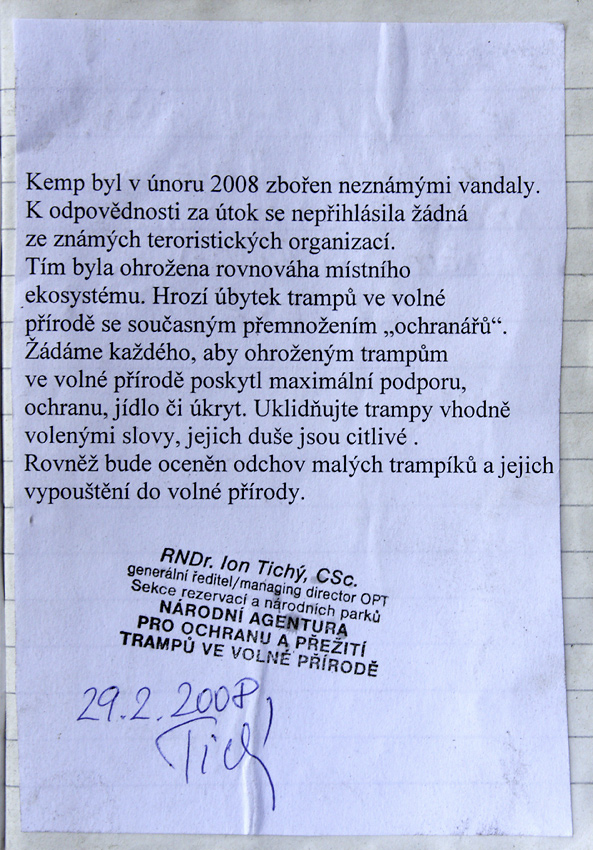 Kemp byl v únoru 2008 zbořen neznámými vandaly.
K odpovědnosti za útok se nepřihlásila žádná
ze známých teroristických organizací.
Tím byla ohrožena rovnováha místního
ekosystému. Hrozí úbytek trampů ve volné
přírodě se současným přemnožením „ochranářů“.
Žádáme každého, aby ohroženým trampům
ve volné přírodě poskytl maximální podporu,
ochranu, jídlo či úkryt. Uklidňujte trampy vhodně
volenými slovy, jejich duše jsou citlivé .
Rovněž bude oceněn odchov malých trampíků a jejich
vypouštění do volné přírody.
RNDr. Ion Tichý, CSc.
generální ředitel/managing director OPT
Sekce rezervací a národních parků
NÁRODNÍ AGENTURA
PRO OCHRANU A PŘEŽITÍ
TRAMPŮ VE VOLNÉ PŘÍRODĚ
29.2.2008
Tichý